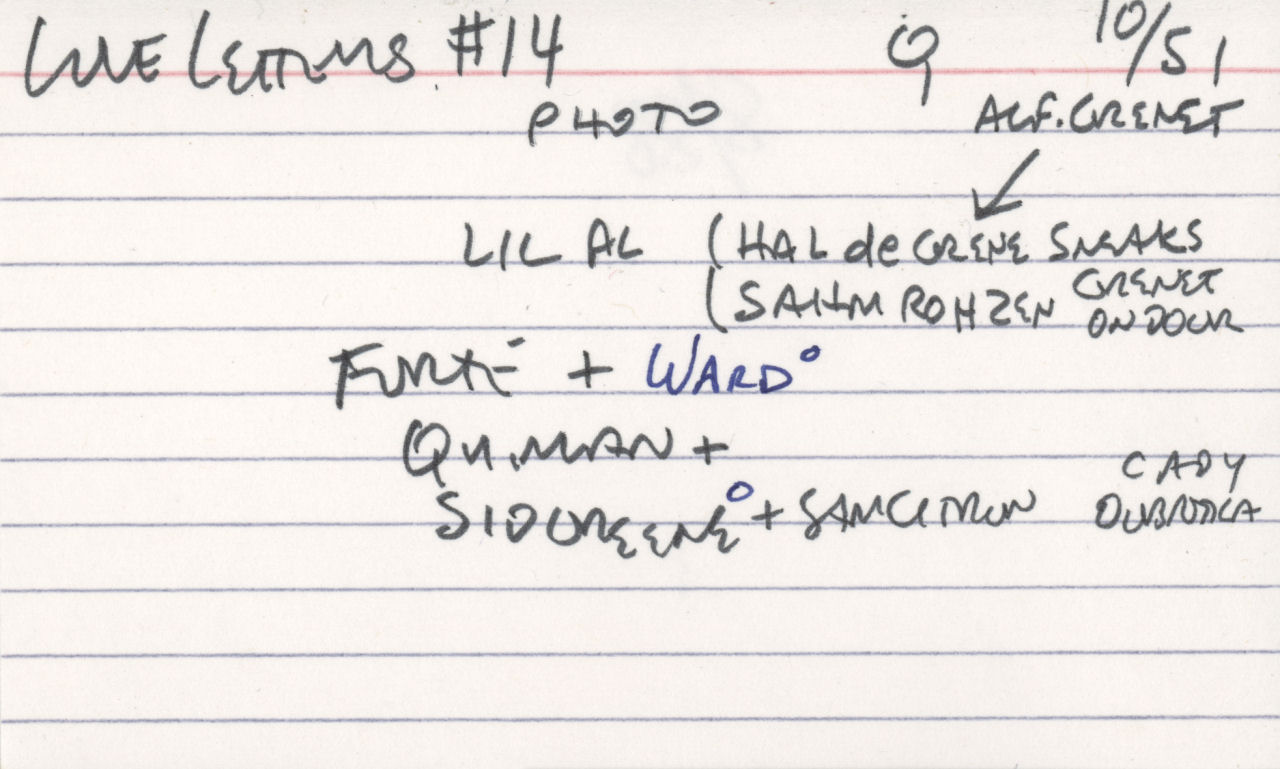 LOVE LETTERS #14 Q 10/51
PHOTO ALF. GRENET
LIL AL (HAL de GRENE SNEAKS
(SAHM ROHZEN GRENET
ON DOOR
FORTÉ + WARD°
QU.MAN +
SID GREENE° + SAM CITRON CADY
DUBROTKA